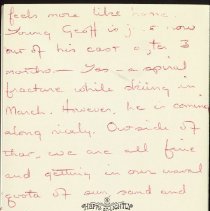 feels more like home.
Young Geoff is just now
out of his cast after 3
months - Yes - a spiral
fracture while skiing in
March. However, he is coming
along nicely. Outside of
that, we are all fine
and getting in our usual
quota of sun sand and